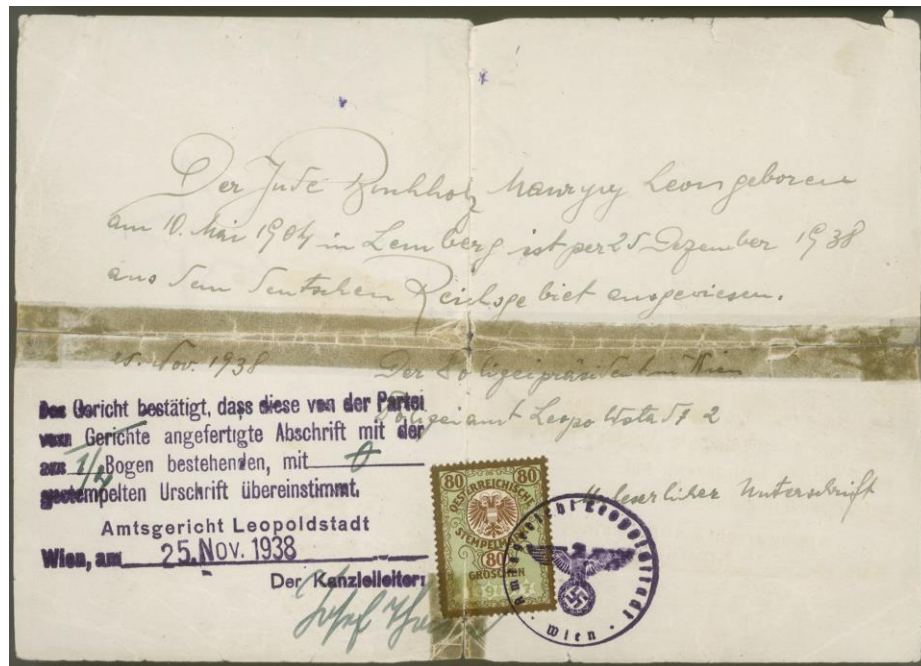 Der Jude Buchholz Maurycy Leon geboren
am 10. Mai 1904 in Lemberg ist per 25 Dezember 1938
aus dem deutschen Reichsgebiet ausgewiesen.
25. Nov. 1938 Der Polizeipräsident in Wien
Polizeiamt Leopoldstadt 2
Unleserlicher Unterschrift
Das Gericht bestätigt, dass diese von der Partei
vom Gerichte angefertigte Abschrift mit der
aus 1/2 Bogen bestehenden, mit 0
gestempelten Urschrift übereinstimmt.
Amtsgericht Leopoldstadt
Wien, am 25. NOV. 1938
Der Kanzleileiter:
Josef
80 80
OESTERREICHISCHE
STEMPELMARKE
80
GROSCHEN
Amtsgericht Leopoldstadt
Wien